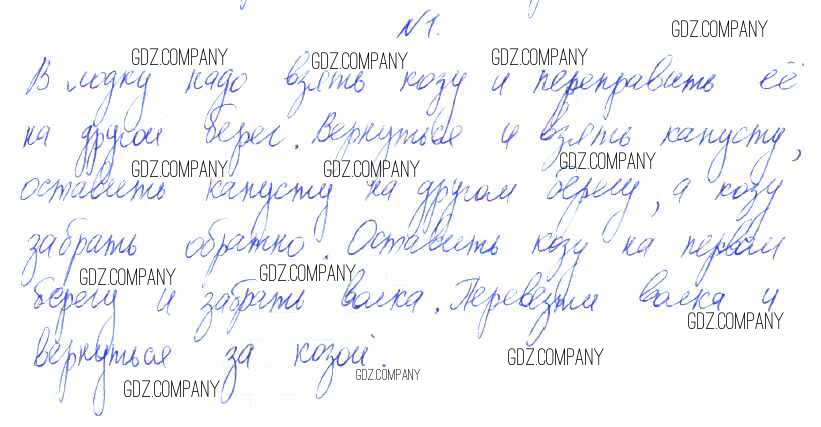 №1.
GDZ.COMPANY
GDZ.COMPANY GDZ.COMPANY GDZ.COMPANY
В лодку надо взять козу и переправить её
на другой берег. Вернуться и взять капусту,
GDZ.COMPANY GDZ.COMPANY GDZ.COMPANY
оставить капусту на другом берегу, а козу
забрать обратно. Оставить козу на первом
GDZ.COMPANY GDZ.COMPANY
берегу и забрать волка. Перевезти волка и
GDZ.COMPANY
вернуться за козой.
GDZ.COMPANY
GDZ.COMPANY GDZ.COMPANY